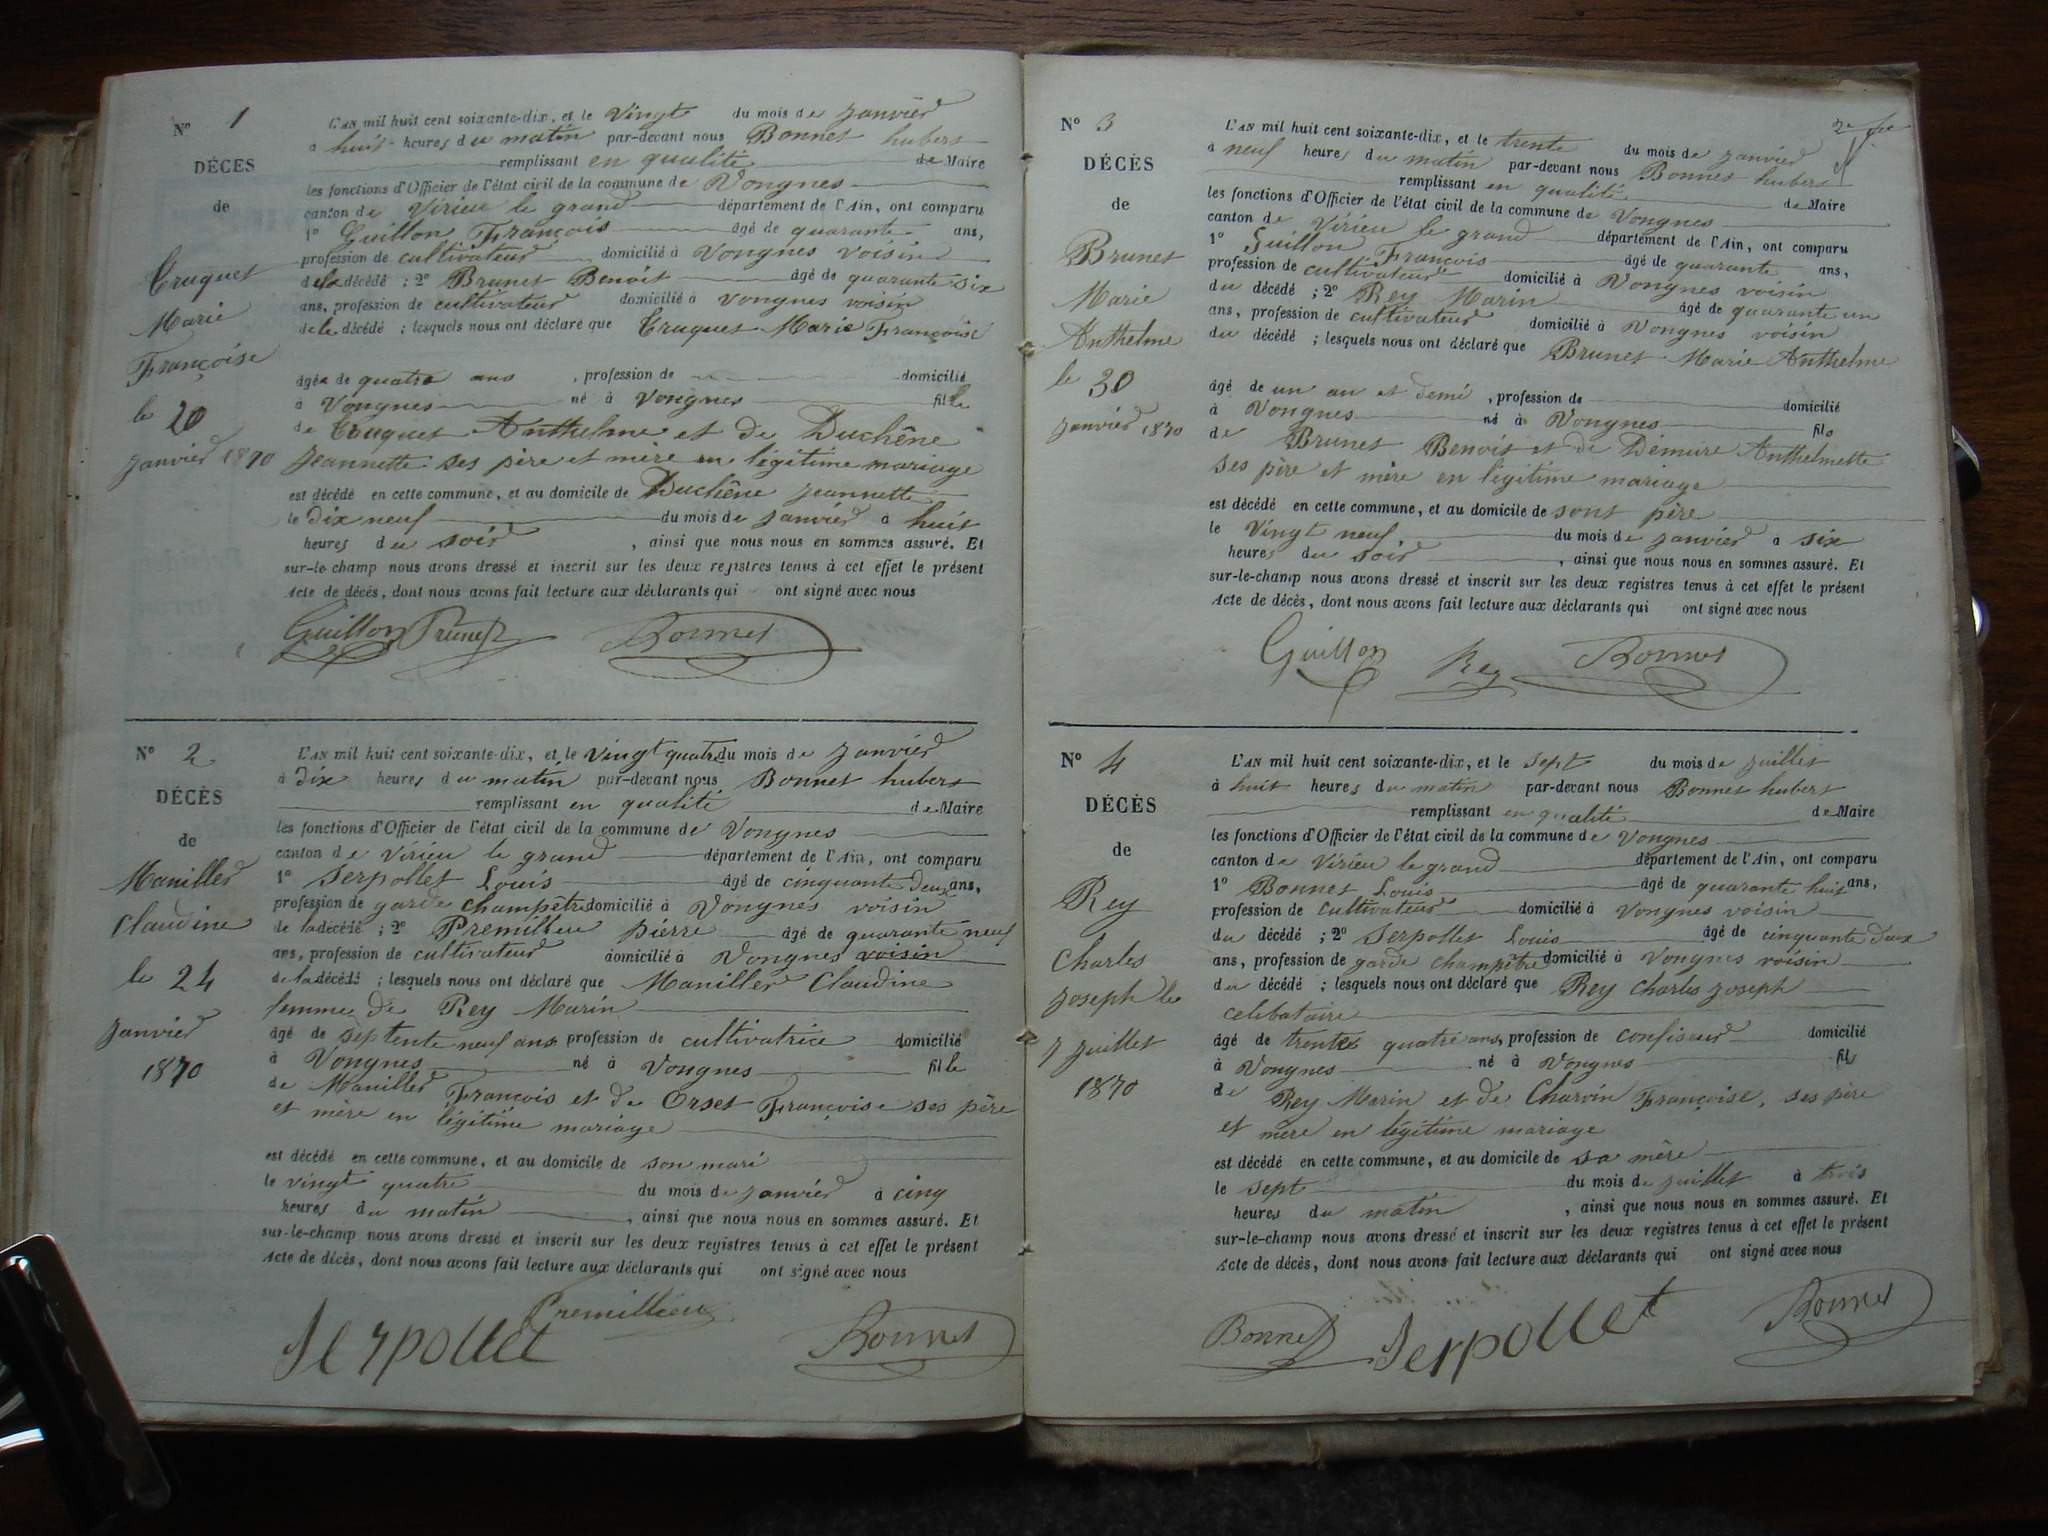 N° 1
DÉCÈS
de
Truquet
Marie
Françoise
le 20
janvier 1870
L'AN mil huit cent soixante-dix, et le Vingt du mois de janvier
à huit heures du matin par-devant nous Bonnet hubert
remplissant en qualité de Maire
les fonctions d'Officier de l'état civil de la commune de Vongnes
canton de Virieu le grand département de l'Ain, ont comparu
1° Guillon François âgé de quarante ans,
profession de cultivateur domicilié à Vongnes voisin
de la décédé ; 2° Brunet Benoit âgé de quarante six
ans, profession de cultivateur domicilié à Vongnes voisin
de la décédé ; lesquels nous ont déclaré que Truquet Marie Françoise
âgée de quatre ans , profession de domicilié
à Vongnes né à Vongnes fille
de Truquet Anthelme et de Duchêne
Jeannette ses père et mère en légitime mariage
est décédé en cette commune, et au domicile de Duchêne jeannette
le dix neuf du mois de janvier à huit
heures du soir , ainsi que nous nous en sommes assuré. Et
sur-le-champ nous avons dressé et inscrit sur les deux registres tenus à cet effet le présent
Acte de décès, dont nous avons fait lecture aux déclarants qui ont signé avec nous
Guillon Brunet Bonnet
N° 2
DÉCÈS
de
Maniller
Claudine
le 24
janvier
1870
L'AN mil huit cent soixante-dix, et le vingt quatre du mois de janvier
à dix heures du matin par-devant nous Bonnet hubert
remplissant en qualité de Maire
les fonctions d'Officier de l'état civil de la commune de Vongnes
canton de Virieu le grand département de l'Ain, ont comparu
1° Serpollet Louis âgé de cinquante deux ans,
profession de garde champêtre domicilié à Vongnes voisin
de la décédé ; 2° Premillieu pierre âgé de quarante neuf
ans, profession de cultivateur domicilié à Vongnes voisin
de la décédé ; lesquels nous ont déclaré que Maniller Claudine
femme de Rey Marin
âgé de septente neuf ans profession de cultivatrice domicilié
à Vongnes né à Vongnes fille
de Maniller François et de Orset Françoise ses père
et mère en légitime mariage
est décédé en cette commune, et au domicile de son mari
le vingt quatre du mois de janvier à cinq
heures du matin , ainsi que nous nous en sommes assuré. Et
sur-le-champ nous avons dressé et inscrit sur les deux registres tenus à cet effet le présent
Acte de décès, dont nous avons fait lecture aux déclarants qui ont signé avec nous
Serpollet Premillieu Bonnet
N° 3
DÉCÈS
de
Brunet
Marie
Anthelme
le 30
janvier 1870
L'AN mil huit cent soixante-dix, et le trente du mois de janvier
à neuf heures du matin par-devant nous Bonnet hubert
remplissant en qualité de Maire
les fonctions d'Officier de l'état civil de la commune de Vongnes
canton de Virieu le grand département de l'Ain, ont comparu
1° Guillon François âgé de quarante ans,
profession de cultivateur domicilié à Vongnes voisin
du décédé ; 2° Rey Marin âgé de quarante un
ans, profession de cultivateur domicilié à Vongnes voisin
du décédé ; lesquels nous ont déclaré que Brunet Marie Anthelme
âgé de un an et demi , profession de domicilié
à Vongnes né à Vongnes fils
de Brunet Benoit et de Demure Anthelmette
ses père et mère en légitime mariage
est décédé en cette commune, et au domicile de sont père
le vingt neuf du mois de janvier à six
heures du soir , ainsi que nous nous en sommes assuré. Et
sur-le-champ nous avons dressé et inscrit sur les deux registres tenus à cet effet le présent
Acte de décès, dont nous avons fait lecture aux déclarants qui ont signé avec nous
Guillon Rey Bonnet
N° 4
DÉCÈS
de
Rey
Charles
joseph le
7 juillet
1870
L'AN mil huit cent soixante-dix, et le sept du mois de juillet
à huit heures du matin par-devant nous Bonnet hubert
remplissant en qualité de Maire
les fonctions d'Officier de l'état civil de la commune de Vongnes
canton de Virieu le grand département de l'Ain, ont comparu
1° Bonnet Louis âgé de quarante huit ans,
profession de cultivateur domicilié à Vongnes voisin
du décédé ; 2° Serpollet Louis âgé de cinquante deux
ans, profession de garde champêtre domicilié à Vongnes voisin
du décédé ; lesquels nous ont déclaré que Rey Charles joseph
celibataire
âgé de trente quatre ans, profession de confiseur domicilié
à Vongnes né à Vongnes fils
de Rey Marin et de Charvin Françoise, ses père
et mère en légitime mariage
est décédé en cette commune, et au domicile de sa mère
le sept du mois de juillet à trois
heures du matin , ainsi que nous nous en sommes assuré. Et
sur-le-champ nous avons dressé et inscrit sur les deux registres tenus à cet effet le présent
Acte de décès, dont nous avons fait lecture aux déclarants qui ont signé avec nous
Bonnet Serpollet Bonnet